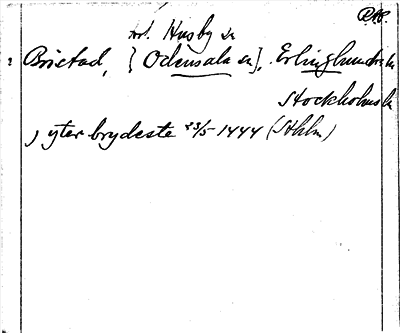 RAP.
nv. Husby sn
: Bristad, [Odensala sn], Erlinghundra h
Stockholms l
, yter brydesta 23/5 1444 (Sthlm)